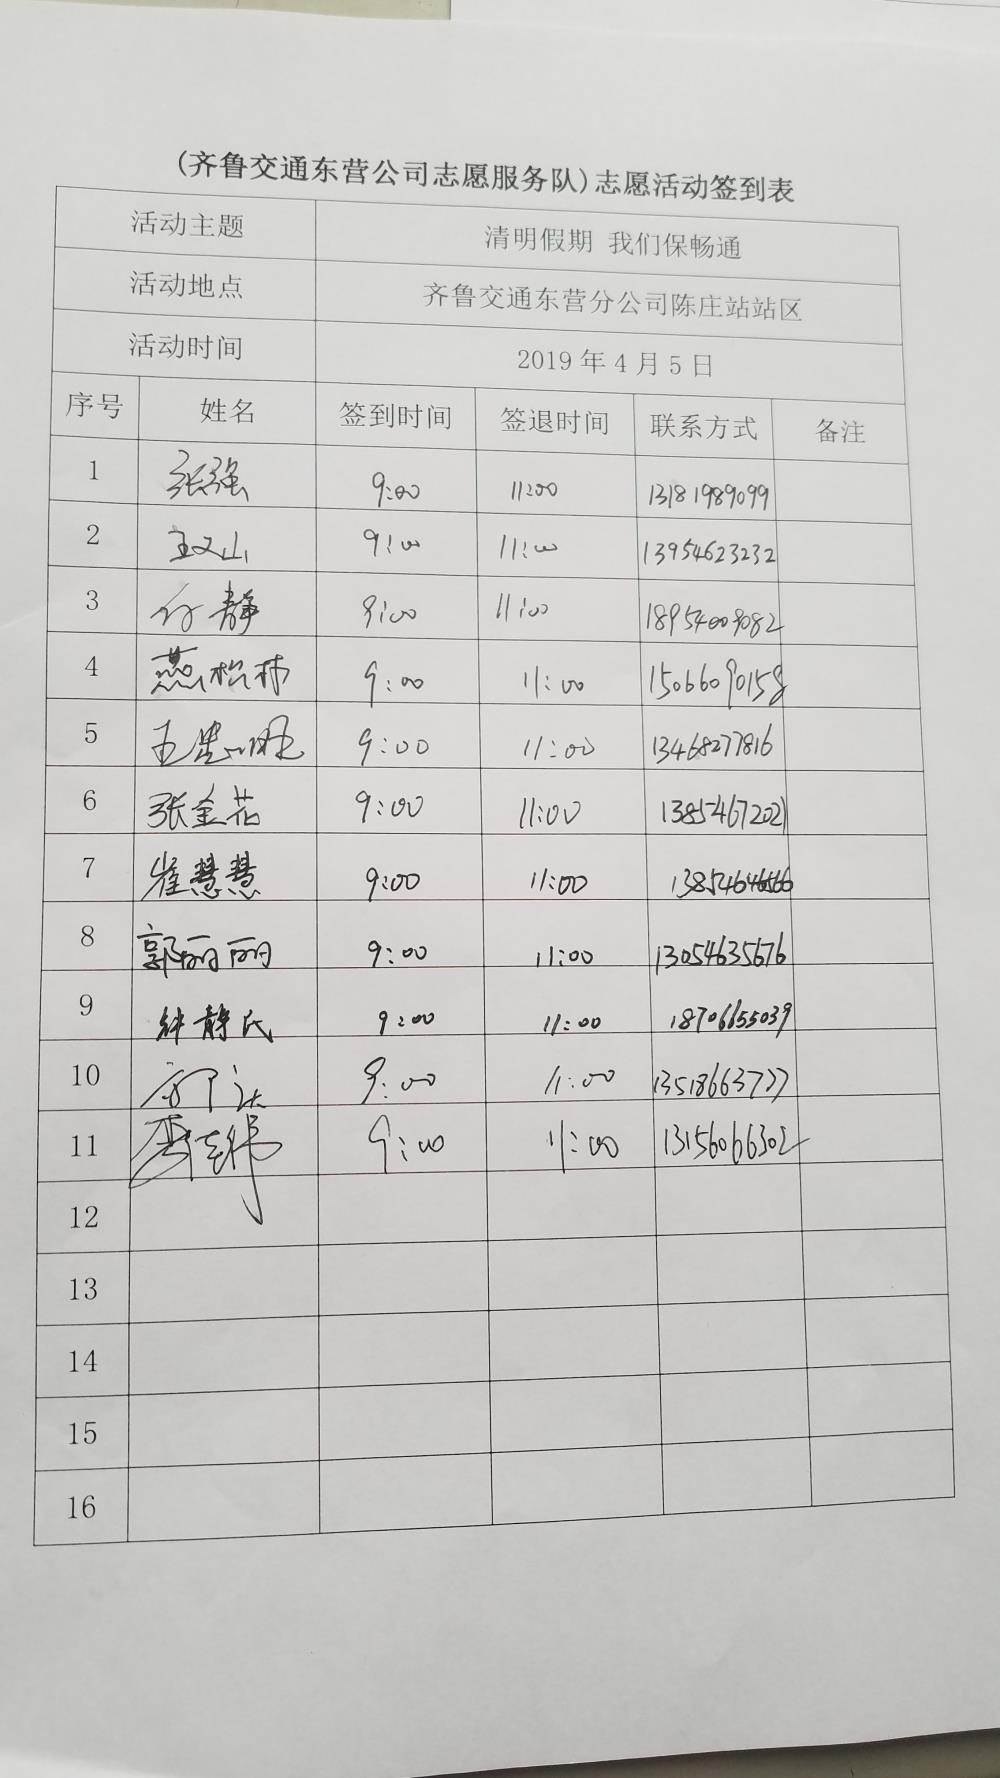 (齐鲁交通东营公司志愿服务队)志愿活动签到表
活动主题 清明假期 我们保畅通
活动地点 齐鲁交通东营分公司陈庄站站区
活动时间 2019年4月5日
序号 姓名 签到时间 签退时间 联系方式 备注
1 张强 9:00 11:00 13181989099
2 王文山 9:00 11:00 13954623232
3 付静 9:00 11:00 18954009082
4 燕松林 9:00 11:00 15066090158
5 王忠旺 9:00 11:00 13468277816
6 张金花 9:00 11:00 13854672021
7 崔慧慧 9:00 11:00
8 郭丽丽 9:00 11:00 13054635676
9 钟静民 9:00 11:00 18706655039
10 9:00 11:00 13518663777
11 9:00 11:00 13156066302
12
13
14
15
16